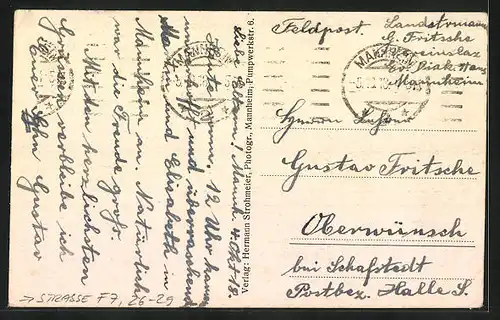 Feldpost. Landsturmmann
G. Fritsche
Vereinslaz.
Ev. Diak. Haus
Mannheim
MANNHEIM
Gustav Fritsche
Oberwünsch
bei Schafstedt
Postbez. Halle S.
Verlag: Hermann Strohmeier, Photogr., Mannheim, Pumpwerkstr. 6.
Liebe Eltern! Mannh. 4. Okt. 18.
Heute vorm. 12 Uhr kamen
unverhofft und überraschend
Martin und Elisabeth in
Mannheim an. Natürlich
war die Freude groß.
Mit den herzlichsten
Grüssen verbleibe ich
Euer Sohn Gustav
→ STRASSE F7, 26-29